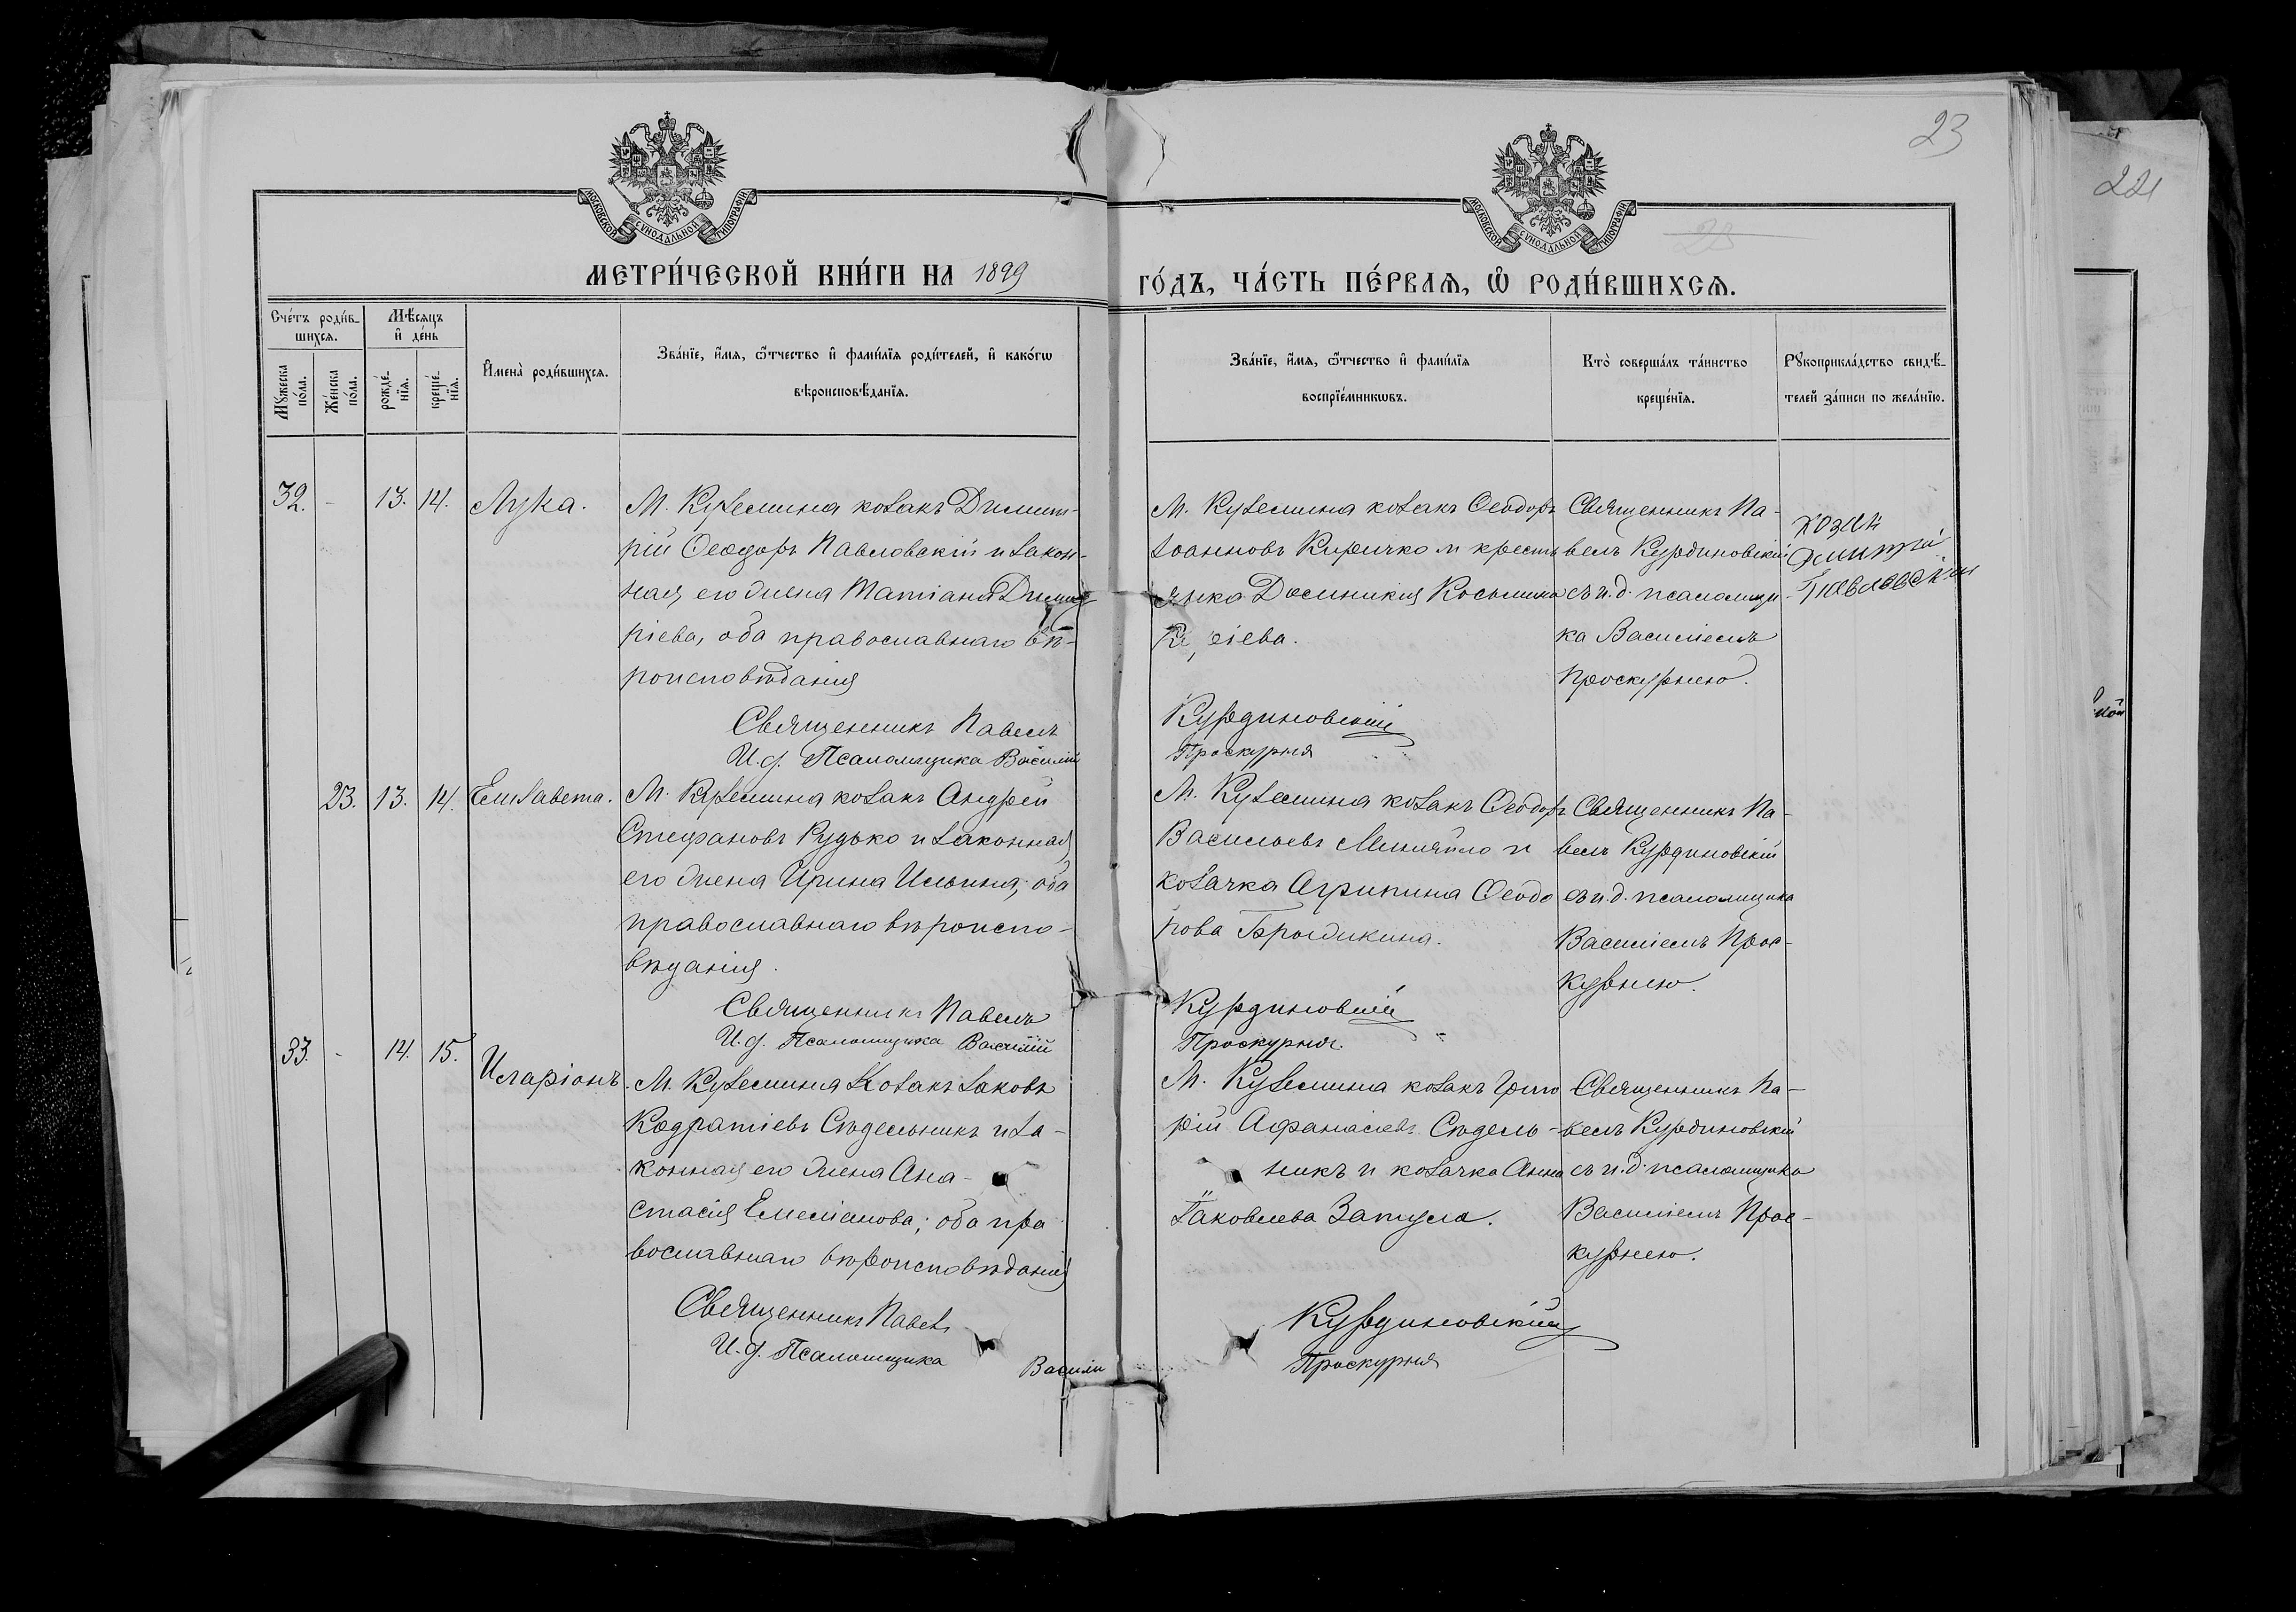 23
221
МОСКОВСКОЙ СУНОДАЛЬНОЙ ТИПОГРАФІИ
МОСКОВСКОЙ СУНОДАЛЬНОЙ ТИПОГРАФІИ
23
МЕТРИ́ЧЕСКОЙ КНИ́ГИ НА 1899
ГО́ДЪ, ЧА́СТЬ ПЕ́РВАЯ, Ѿ РОДИ́ВШИХСЯ.
Сче́тъ роди́в-
шихся.
Мѣ́сяцъ
и҆ де́нь
Мꙋ́жеска
по́ла.
Же́нска
по́ла.
рожде́-
нїя.
креще́-
нїя.
И҆мена̀ роди́вшихся.
Зва́нїе, и҆́мя, ѻ҆́тчество и҆ фами́лїя роди́телей, и҆ како́гѡ
вѣроисповѣ́данїя.
Зва́нїе, и҆́мя, ѻ҆́тчество и҆ фами́лїя
воспрїе́мникѡвъ.
Кто̀ соверша́лъ та́инство
креще́нїя.
Рꙋкоприкла́дство свидѣ́-
телей за́писи по жела́нїю.
32. - 13. 14. Лука.
М. Куземина козакъ Димит-
рій Ѳеодоръ Павловскій и закон-
ная его жена Татіана Димит
ріева, оба православнаго вѣ-
роисповѣданія
Священникъ Павелъ
И.д. Псаломщика Василій
М. Куземина козакъ Ѳеодоръ
Іоанновъ Киричко и кресть
янка Домникия Косьмина
ріева.
Курдиновскій
Проскурня
Священникъ Па-
велъ Курдиновскій
съ и.д. псаломщи-
ка Василіемъ
Проскурнею.
Козак
Дмитрій
Павловский
23. 13. 14. Елисавета.
М. Куземина козакъ Андрей
Стефановъ Рудько и законная
его жена Ирина Ильина, оба
православнаго вѣроиспо-
вѣданія.
Священникъ Павелъ
И.д. Псаломщика Василій
М. Куземина козакъ Ѳеодоръ
Васильевъ Миняйло и
козачка Агрипина Ѳеодо
рова Брыжикина.
Курдиновскій
Проскурня.
Священникъ Па-
велъ Курдиновскій
съ и.д. псаломщика
Василіемъ Прос-
курнею.
33. - 14. 15. Иларіонъ.
М. Куземина Козакъ Іаковъ
Кодратіевъ Сѣдельникъ и за-
конная его жена Ана-
стасія Емеліанова; оба пра
вославнаго вѣроисповѣданія
Священникъ Павелъ
И.д. Псаломщика Василій
М. Куземина козакъ Григо
рій Афанасіевъ Сѣдель-
никъ и козачка Анна
Іаковлева Запула.
Курдиновскій
Проскурня
Священникъ Па-
велъ Курдиновскій
съ и.д. псаломщика
Василіемъ Прос-
курнею.